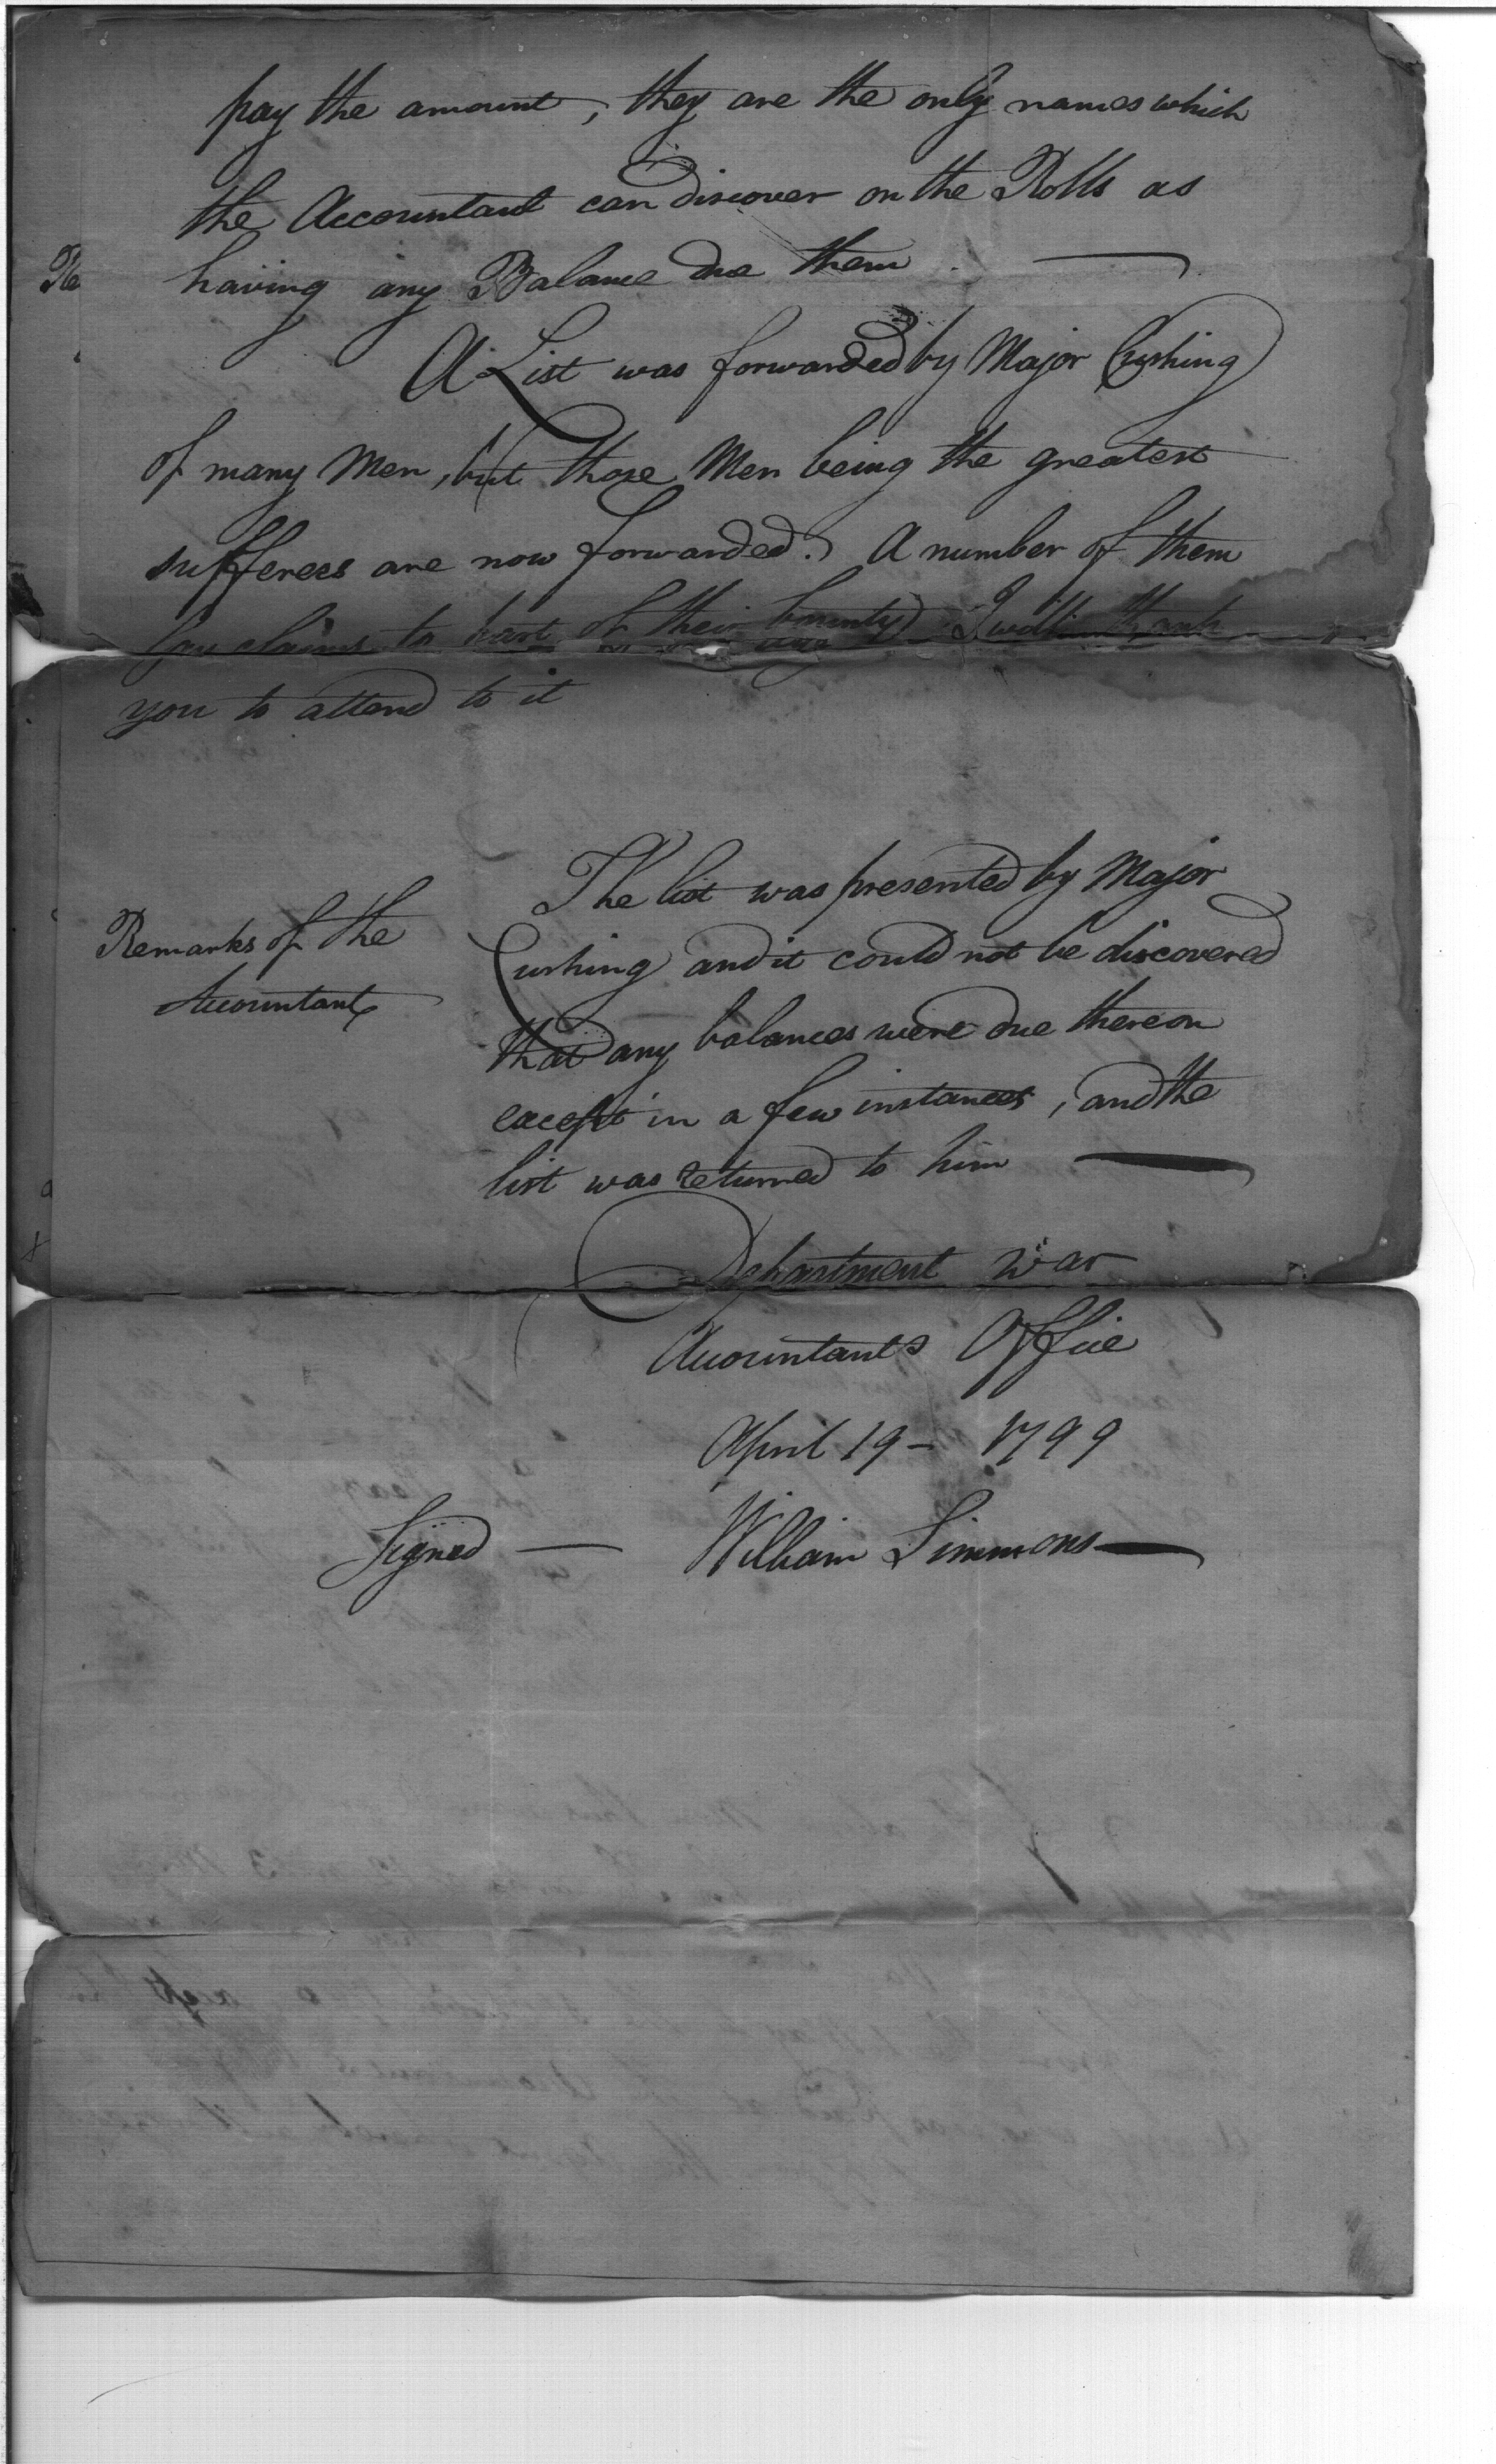 pay the amount, they are the only names which
the Accountant can discover on the Rolls as
having any Balance due them
Re
A List was forwarded by Major Cushing
of many Men, but those Men being the greatest
sufferers are now forwarded. A number of them
lay claims to part of their bounty I will thank
you to attend to it
The list was presented by Major
Remarks of the
Accountant
Cushing and it could not be discovered
that any balances were due thereon
except in a few instances, and the
list was returned to him
Department War
Accountants Office
April 19 - 1799
Signed — William Simmons